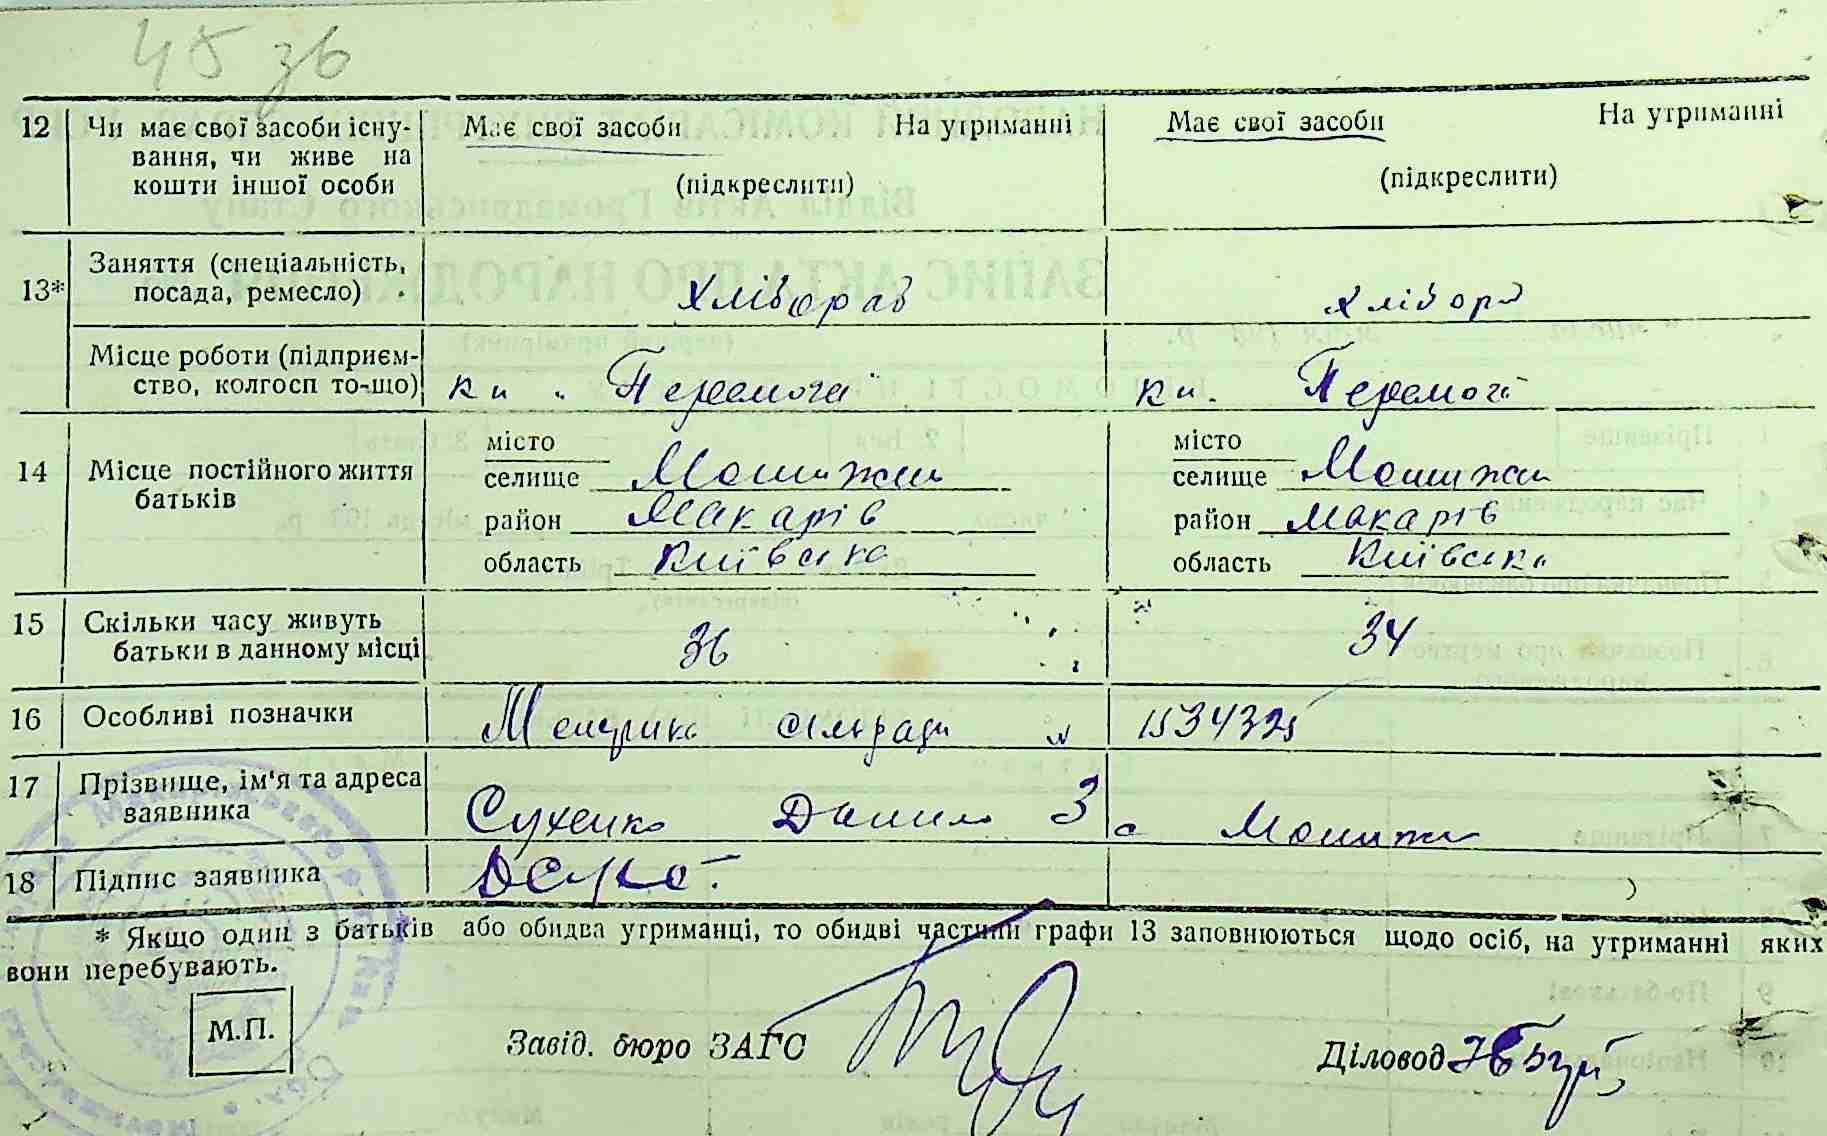 45 зв
12 Чи має свої засоби існування, чи живе на кошти іншої особи
Має свої засоби На утриманні
(підкреслити)
Має свої засоби На утриманні
(підкреслити)
13* Заняття (спеціальність, посада, ремесло)
Хлібороб
хлібор
Місце роботи (підприємство, колгосп то-що)
Кп. "Перемога"
Кп. Перемога
14 Місце постійного життя батьків
місто
селище Мотижин
район Макарів
область Київська
місто
селище Мотижин
район Макарів
область Київська
15 Скільки часу живуть батьки в данному місці
36
34
16 Особливі позначки
Метрика сільради № 1534325
17 Прізвище, ім'я та адреса заявника
Сухенко Данило З с Мотижи
18 Підпис заявника
* Якщо один з батьків або обидва утриманці, то обидві частини графи 13 заповнюються щодо осіб, на утриманні яких
вони перебувають.
М.П.
Завід. бюро ЗАГС
Діловод